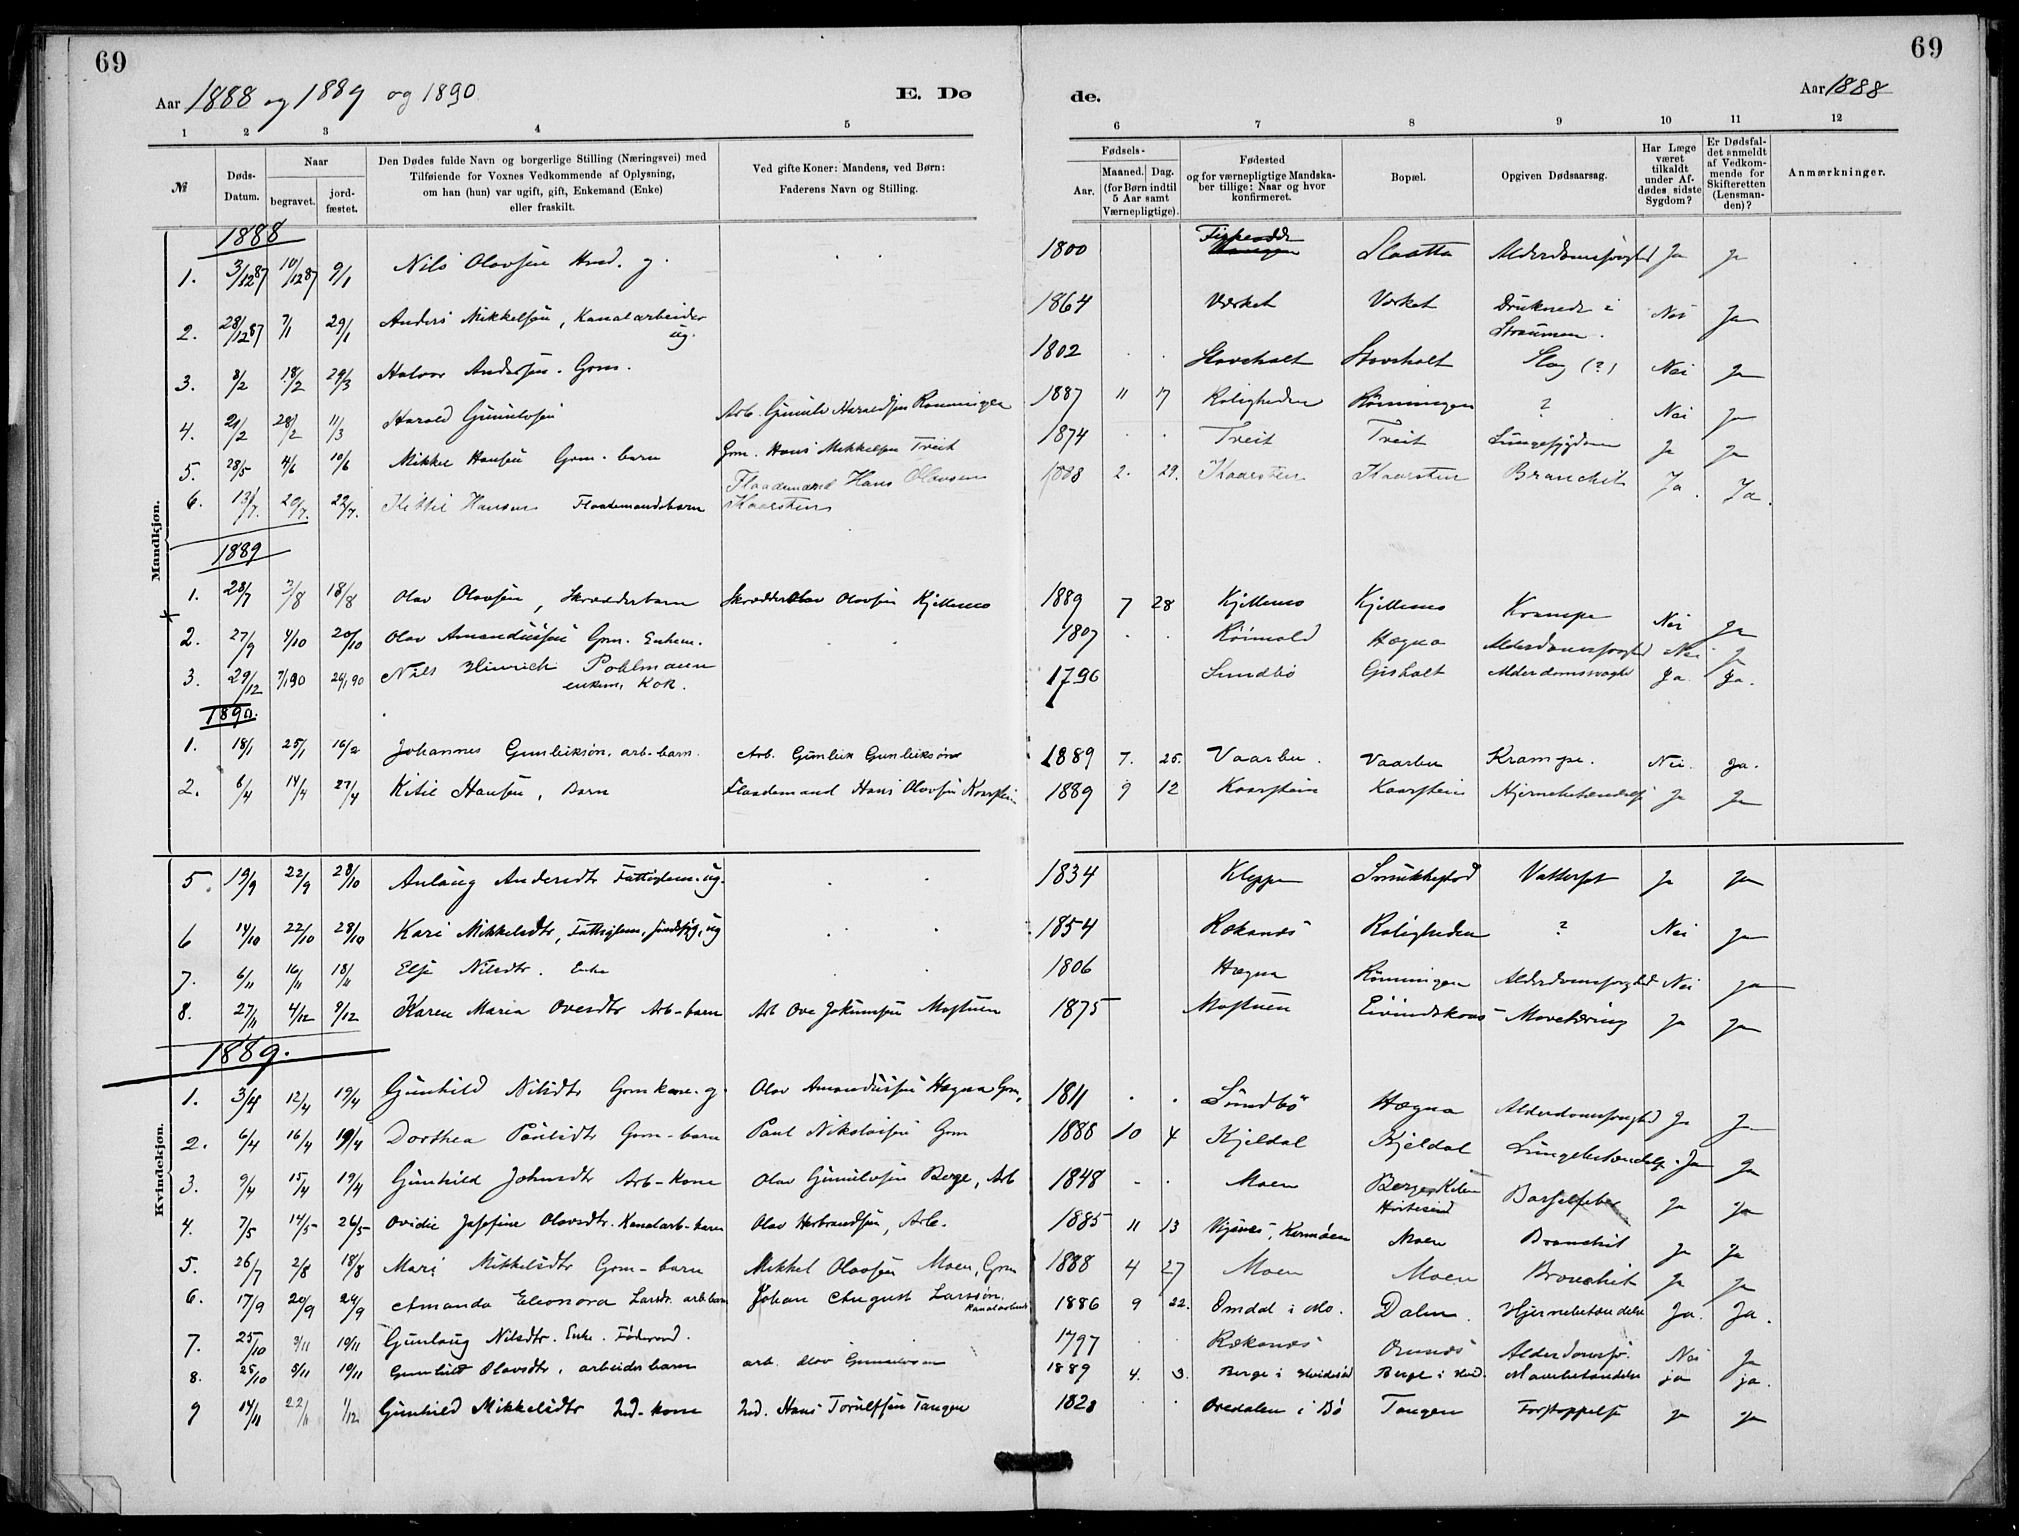 69
69
Aar 1888 og 1889 og 1890
E. Dø
de.
Aar 1888
1 2 3 4 5 6 7 8 9 10 11 12
№
Døds-Datum.
Naar
begravet.
jord-fæstet.
Den Dødes fulde Navn og borgerlige Stilling (Næringsvei) med
Tilføiende for Voxnes Vedkommende af Oplysning,
om han (hun) var ugift, gift, Enkemand (Enke)
eller fraskilt.
Ved gifte Koner: Mandens, ved Børn:
Faderens Navn og Stilling.
Fødsels-
Aar.
Maaned. Dag.
(for Børn indtil
5 Aar samt
Værnepligtige).
Fødested
og for værnepligtige Mandska-
ber tillige: Naar og hvor
konfirmeret.
Bopæl.
Opgiven Dødsaarsag.
Har Læge
været
tilkaldt
under Af-
dødes sidste
Sygdom?
Er Dødsfal-
det anmeldt
af Vedkom-
mende for
Skifteretten
(Lensman-
den)?
Anmærkninger.
Mandkjøn.
1888
1. 3/12 87 10/12 87 9/1 Nils Olavsen g. 1800 Slaatta Alderdomssvaghed Ja Ja
2. 28/12 87 7/1 29/1 Anders Mikkelsen, Kanalarbeider ug. 1864 Værket Værket Druknede i Straumen. Nei Ja
3. 8/2 18/2 29/3 Halvor Andersen. Grm. 1802 Stavsholt Slag (?) Nei Ja
4. 21/2 28/2 11/3 Harald Gunulvsen Arb. Gunulv Haraldsen Rønningen 1887 11 17 Roligheden Rønningen ? Nei Ja
5. 28/5 4/6 10/6 Mikkel Hansen Grm. barn Grm. Hans Mikkelsen Treit 1874 Treit Treit Lungesygdom Ja Ja
6. 13/7. 20/7. 22/7. Kittil Hansen Flaademandsbarn Flaademand Hans Olavsen Kaarstein 1888 2. 29. Kaarstein Kaarstein Bronchit Ja. Ja.
1889
1. 28/7 3/8 18/8 Olav Olavsen, Skrædderbarn Skrædder Olav Olavsen Kjellemo 1889 7 28 Kjellemo Kjellemo Krampe Nei Ja
2. 27/9 4/10 20/10 Olav Amundussen Grm. Enkem. 1807 Hægna Alderdomssvaghed Nei Ja
3. 29/12 7/1 90 26/1 90 Nils Hinrich Pohlmann enkem, Kok. 1796 Sundbö Gisholt Alderdomssvaghed Ja. Ja.
1890.
1. 18/1 25/1 16/2 Johannes Gunleiksøn, arb-barn. Arb. Gunleik Gunleiksøn 1889 7. 25. Vaarbu. Vaarbu Krampe. Nei. Ja.
2. 6/4 14/4 27/4 Kitil Hansen, Barn Flaademand Hans Olavsen Kaarstein 1889 9 12 Kaarstein Kaarstein Hjernebetændelse Ja Ja
Kvindekjøn.
5. 19/9 22/9 28/10 Anlaug Andersdtr Fattiglem. ug. 1834 Kleppe Vattersot Ja Ja
6 14/10 22/10 28/10 Kari Mikkelsdtr, Fattiglem, sindssyg, ug 1854 Rokanes Roligheden ? Nei Ja
7. 6/11 16/11 18/11 Else Nilsdtr. Enke 1806 Hægna Rønningen Alderdomssvaghed Nei Ja
8. 27/11 4/12 9/12 Karen Maria Ovesdtr Arb-barn Arb Ove Jokumsen Mostuen 1875 Mostuen Mavetæring Ja Ja
1889.
1. 3/4 12/4 19/4 Gunhild Nilsdtr Grm kone. g. Olav Amundussen Hægna Grm, 1811 Sundbö Hægna Alderdomssvaghed Ja Ja
2. 6/4 16/4 19/4 Dorthea Paulsdtr Grm-barn Paul Nikolaisen Grm 1888 10 4 Kjeldal Kjeldal Lungebetændelse Ja Ja
3. 9/4 15/4 19/4 Gunhild Johnsdtr Arb-kone Olav Gunulvsen Berge, Arb 1848 Moen Berge, Hvitseid Barselfeber Ja Ja
4. 7/5 14/5 26/5 Ovidie Josefine Olavsdtr. Kanalarb-barn Olav Herbrandsen, Arb. 1885 11 13 Karmöen Moen Bronchit Ja Ja
5. 26/7 2/8 18/8 Mari Mikkelsdtr Grm-barn Mikkel Olavsen Moen, Grm 1888 4 27 Moen Moen Bronchit Ja Ja
6. 17/9 20/9 24/9 Amanda Eleonora Larsdtr. arb barn Johan August Larsson. Kanalarbeid. 1886 9 22. Omdal i Mo. Dalen. Hjernebetændelse Ja. Ja.
7. 25/10 3/11 10/11 Gunlaug Nilsdtr. Enke. Føderaad. 1797 Rokanes Nei Ja
8. 25/10 3/11 10/11 Gunhild Olavsdtr. arbeiderbarn arb. Olav Gunulvsen 1889 4. 3. Berge i Hvideseid Berge i Hvid. Mavebetændelse ja ja.
9 14/11 22/11 1/12 Gunhild Mikkelsdtr Ind-kone Ind. Hans Torulfsen Tangen 1828 Oredalen i Bö Tangen Forstoppelse Ja Ja